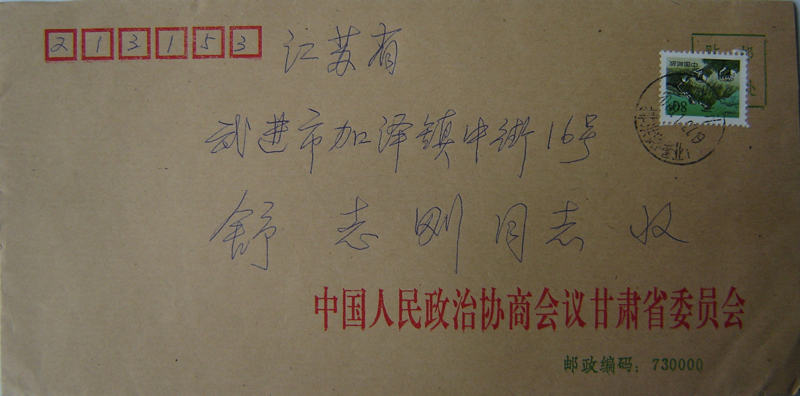 213153
江苏省
武进市加泽镇中街16号
舒志刚同志收
贴 邮
中国邮政
80分
中国人民政治协商会议甘肃省委员会
邮政编码：730000